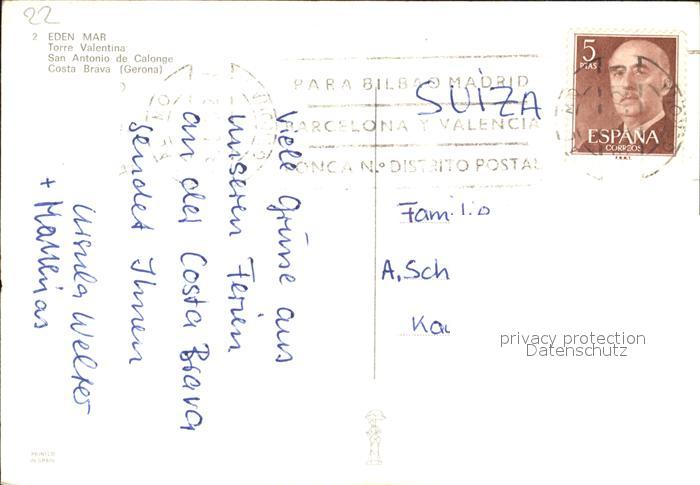 22
2 EDEN MAR
Torre Valentina
San Antonio de Calonge
Costa Brava (Gerona)
PARA BILBAO MADRID
BARCELONA Y VALENCIA
PONGA N.º DISTRITO POSTAL
5
PTAS
ESPAÑA
CORREOS
F.N.M.T.
SUIZA
Viele Grüsse aus
unseren Ferien
an der Costa Brava
sendet Ihnen
Ursula Welter
+ Matthias
Famili
A. Sch
Ka
privacy protection
Datenschutz
PRINTED
IN SPAIN